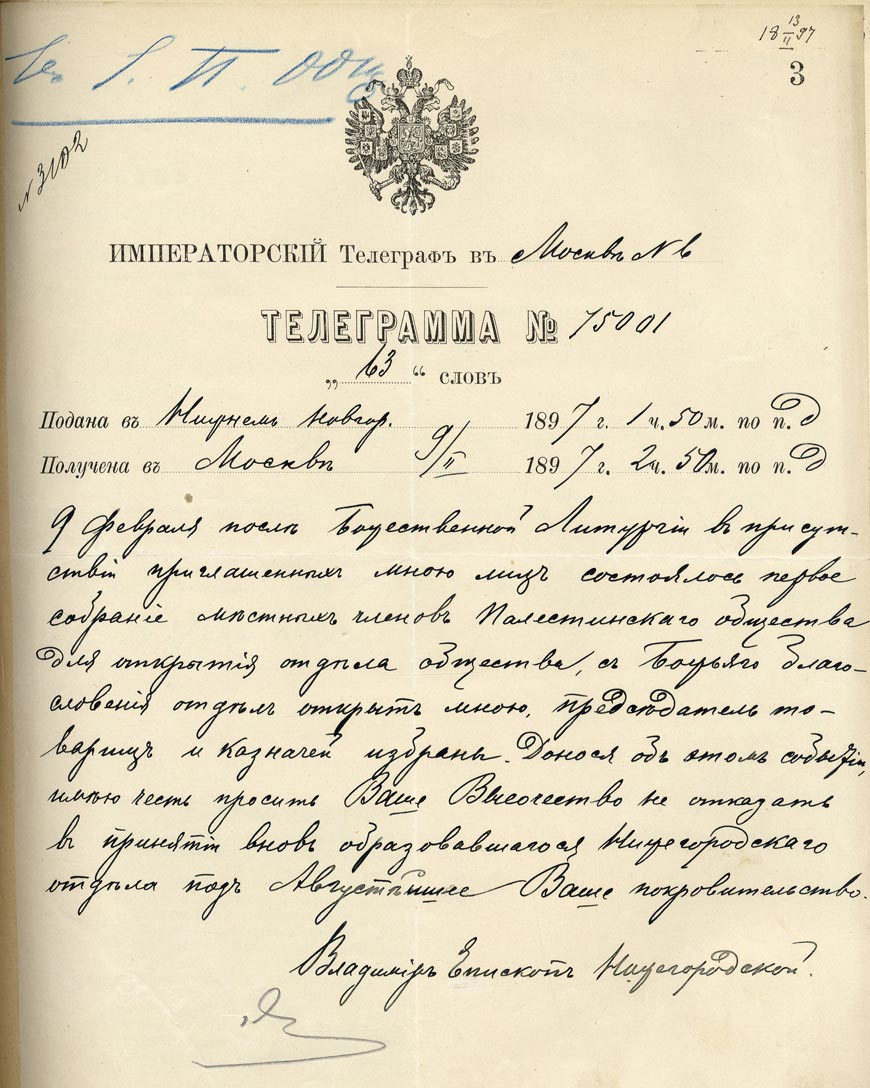 18 13/II 97
3
N 3102
ИМПЕРАТОРСКІЙ Телеграфъ въ Москвѣ N 6
ТЕЛЕГРАММА № 75001
„ 63 “ словъ
Подана въ Нижнемъ Новгор. 1897 г. 1 ч. 50 м. по п. Д
Получена въ Москвѣ 9/II 1897 г. 2 ч. 50 м. по п. Д
9 Февраля послѣ Божественной Литургіи въ присут-
ствіи приглашенныхъ мною лицъ состоялось первое
собраніе мѣстныхъ членовъ Палестинскаго общества
для открытія отдѣла общества, съ Божьяго благо-
словенія отдѣлъ открытъ мною, предсѣдатель то-
варищъ и казначей избраны. Донося объ этомъ событіи,
имѣю честь просить Ваше Высочество не отказать
въ принятіи вновь образовавшагося Нижегородскаго
отдѣла подъ Августѣйшее Ваше покровительство.
Владиміръ Епископъ Нижегородской.